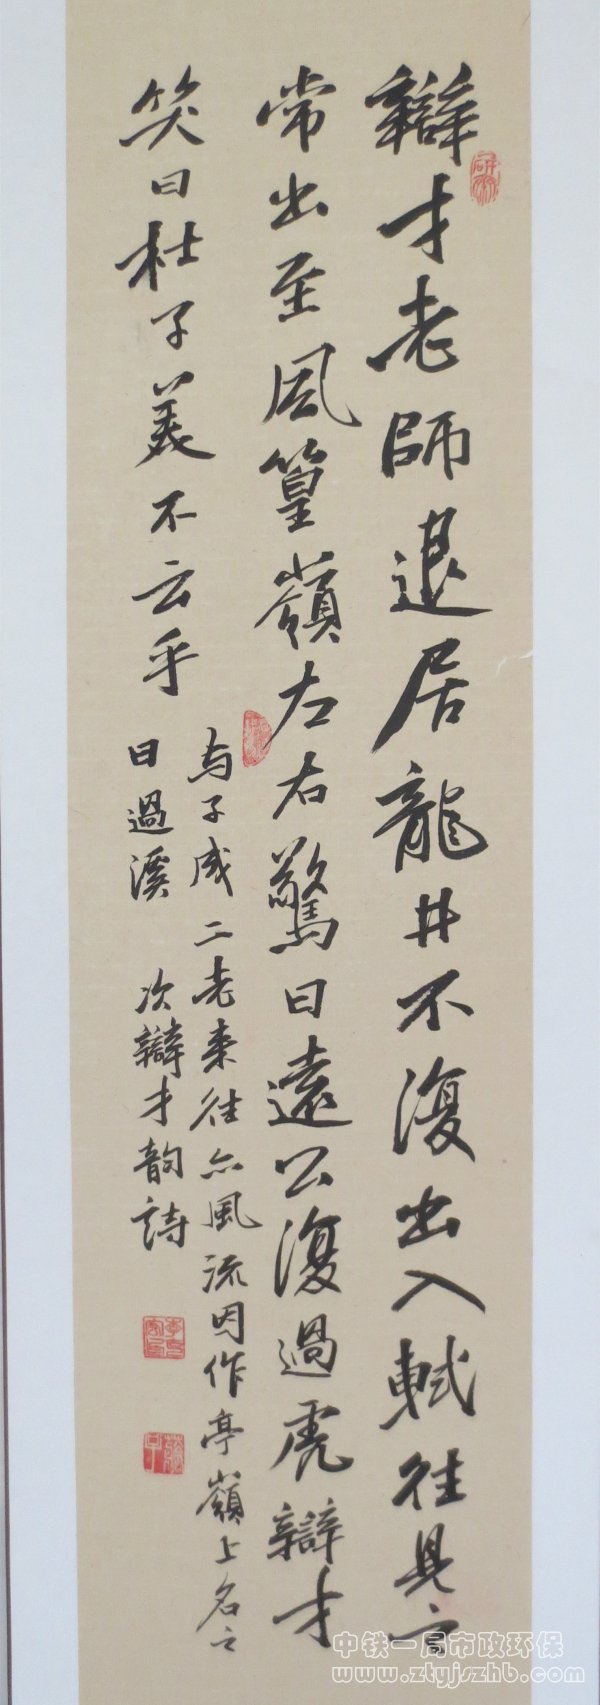 辯才老師退居龍井不復出入軾往見之
常出至風篁嶺左右驚曰遠公復過虎辯才
笑曰杜子美不云乎
与子成二老来往亦風流因作亭嶺上名之
曰過溪 次辯才韵詩
中铁一局市政环保
www.ztyjszhb.com